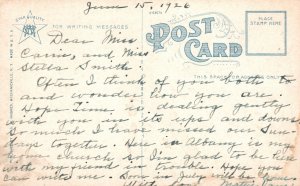 June 15, 1926
FOR WRITING MESSAGES
POST CARD
PLACE STAMP HERE
THIS SPACE FOR ADDRESS ONLY
Dear Miss
Carrie, and Miss
Stella Smith:
Often I think of you both
and wonder how you are
Hope Time is dealing gently
with you in its ups and downs
So much I have missed our Sun-
days together. Here in Albany is my
home church so I'm glad to be here
with my friend in trouble. Hope you
can write me. Soon in July will be